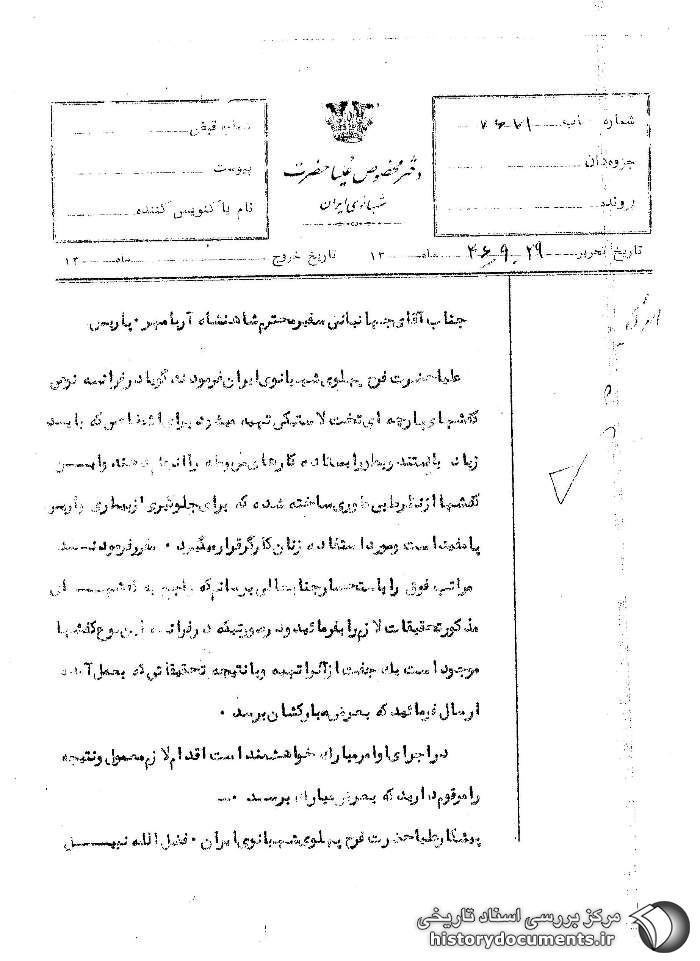 شماره
جزوه‌دان
پرونده
دفتر مخصوص علیا حضرت
شهبانوی ایران
سابقه قبلی
پیوست
نام پاکنویس کننده
تاریخ تحریر ۴۶٫۹٫۲۹ ماه ۱۳ تاریخ خروج ماه ۱۳
جناب آقای جهانبانی سفیر محترم شاهنشاه آریامهر۰ پاریس
علیاحضرت فرح پهلوی شهبانوی ایران فرمودند گویا در فرانسه نوعی
کفشهای پارچه ای تخت لاستیکی تهیه میشود برای اشخاصی که باید
زیاد بایستند و بطور ایستاده کارهای مربوطه را انجام دهند و این
کفشها از نظر طبی طوری ساخته شده که برای جلوگیری از بیماری واریس
پا مفید است و مورد استفاده زنان کارگر قرار میگیرد ۰ مقرر فرمودند
مراتب فوق را باستحضار جنابعالی برسانم که راجع به کفشهای
مذکور تحقیقات لازم را بفرمائید و در صورتیکه در فرانسه این نوع کفشها
موجود است یک جفت از آنرا تهیه و با نتیجه تحقیقاتی که بعمل آمده
ارسال فرمائید که بعرض مبارکشان برسد ۰
در اجرای اوامر مبارک خواهشمند است اقدام لازم معمول و نتیجه
را مرقوم دارید که بعرض مبارک برسد ۰
پیشکار علیاحضرت فرح پهلوی شهبانوی ایران ۰ فضل الله نبیل
مرکز بررسی اسناد تاریخی
historydocuments.ir